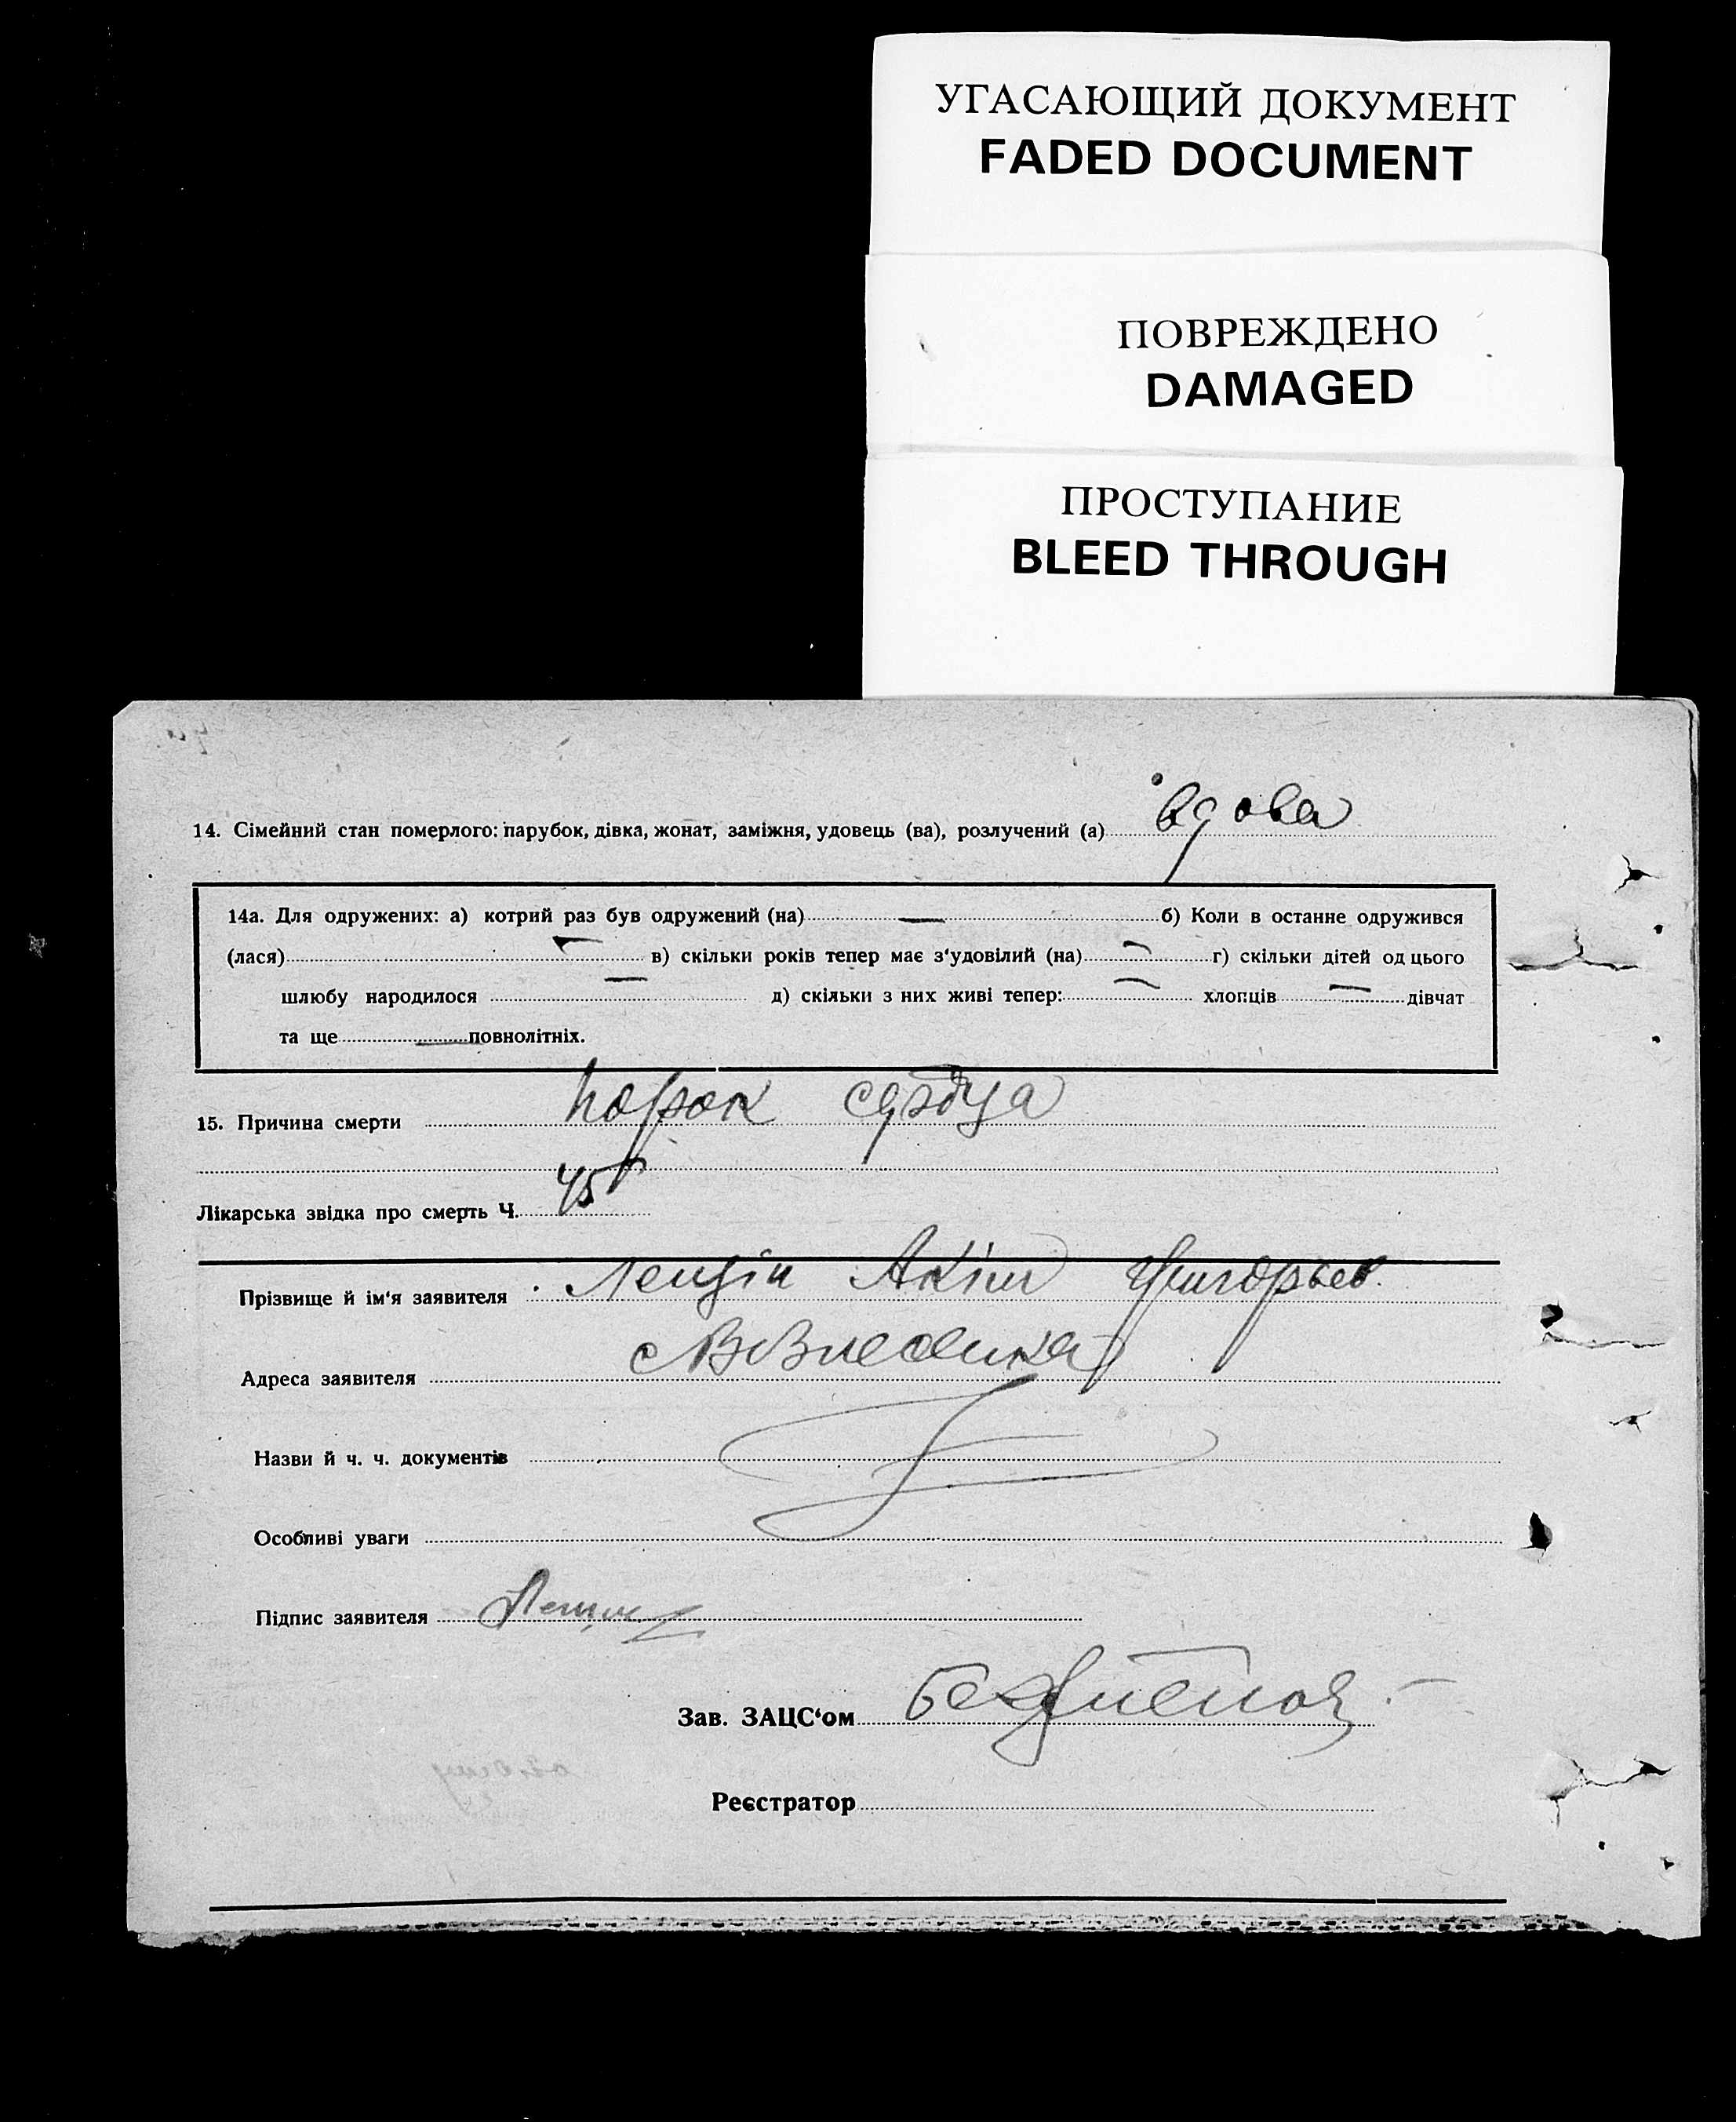 УГАСАЮЩИЙ ДОКУМЕНТ
FADED DOCUMENT
ПОВРЕЖДЕНО
DAMAGED
ПРОСТУПАНИЕ
BLEED THROUGH
14. Сімейний стан померлого: парубок, дівка, жонат, заміжня, удовець (ва), розлучений (а) вдова
14а. Для одружених: а) котрий раз був одружений (на) — б) Коли в останнє одружився
(лася) — в) скільки років тепер має з‘удовілий (на) — г) скільки дітей од цього
шлюбу народилося — д) скільки з них живі тепер: — хлопців — дівчат
та ще — повнолітніх.
15. Причина смерти порок сердца
Лікарська звідка про смерть Ч. 45
Прізвище й ім‘я заявителя Акім Григорьев
Адреса заявителя
Назви й ч. ч. документів
Особливі уваги
Підпис заявителя
Зав. ЗАЦС‘ом
Реєстратор